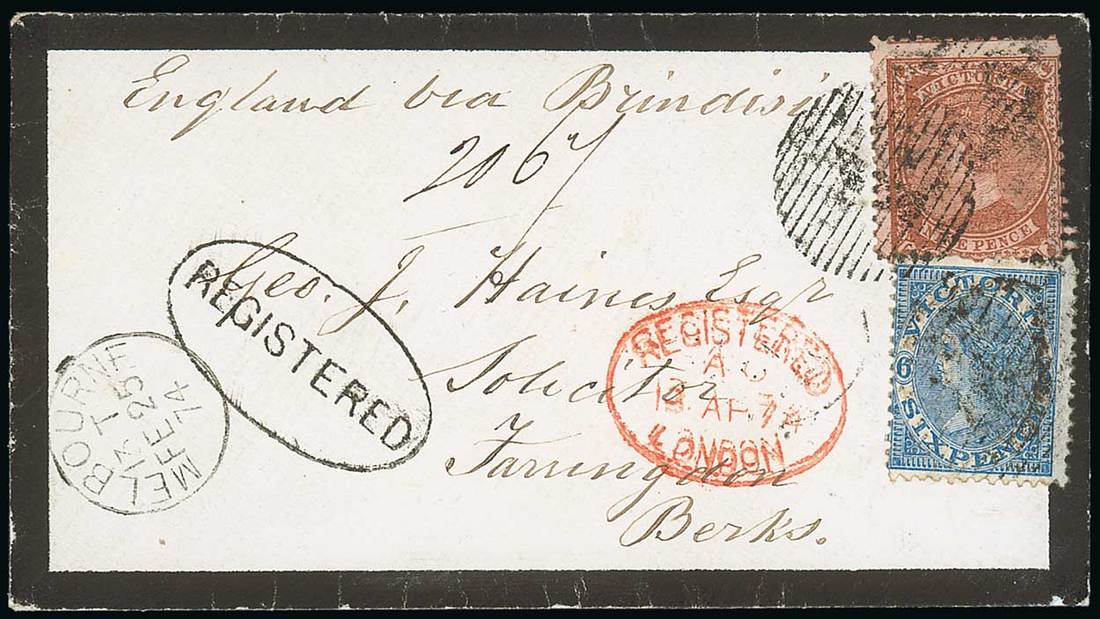 England via Brindisi
206
Geo. J. Haines Esqr
Solicitor
Farringdon
Berks.
REGISTERED
MELBOURNE
17 T
FE 25
74
REGISTERED
13 AP 74
LONDON
VICTORIA
NINE PENCE
VICTORIA
6
SIX PENCE